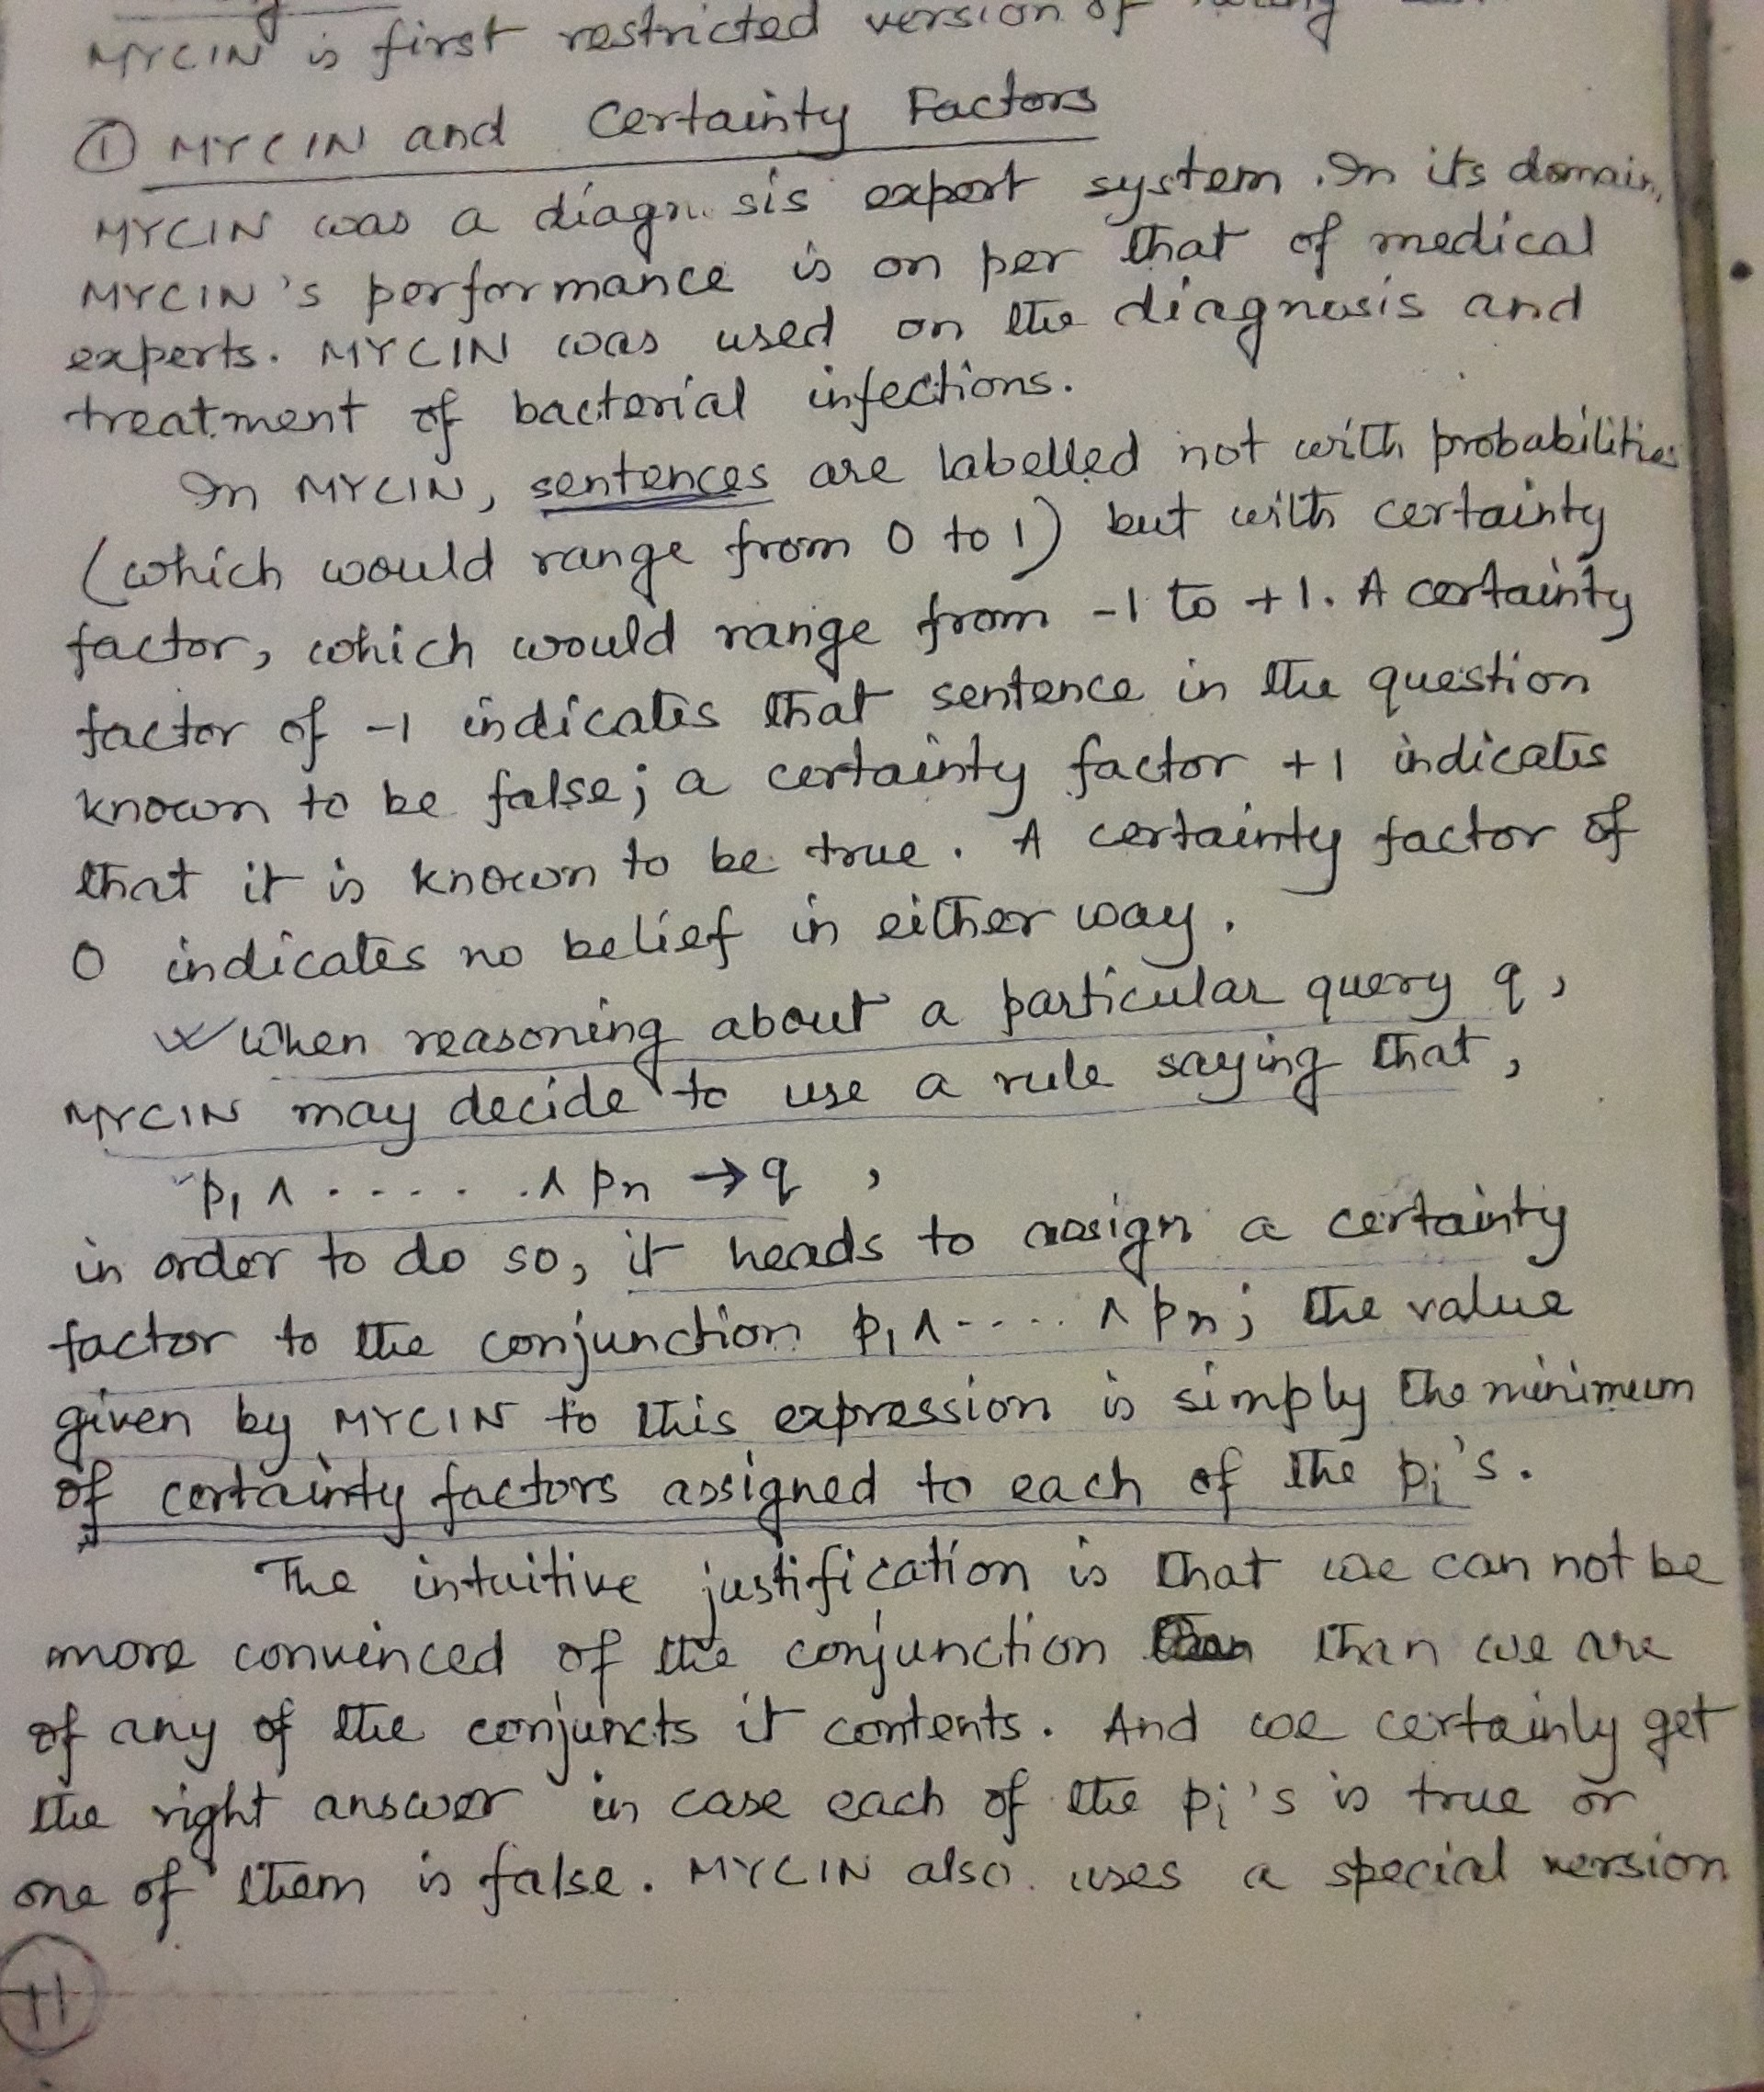 MYCIN is first restricted version of
① MYCIN and Certainty Factors
MYCIN was a diagnosis expert system. In its domain,
MYCIN's performance is on per that of medical
experts. MYCIN was used on the diagnosis and
treatment of bacterial infections.
In MYCIN, sentences are labelled not with probabilities
(which would range from 0 to 1) but with certainty
factor, which would range from -1 to +1. A certainty
factor of -1 indicates that sentence in the question
known to be false; a certainty factor +1 indicates
that it is known to be true. A certainty factor of
0 indicates no belief in either way.
When reasoning about a particular query q,
MYCIN may decide to use a rule saying that,
p₁ ∧ ...... ∧ pn → q ,
in order to do so, it heads to assign a certainty
factor to the conjunction p₁ ∧ ..... ∧ pn; the value
given by MYCIN to this expression is simply the minimum
of certainty factors assigned to each of the pi's.
The intuitive justification is that we can not be
more convinced of the conjunction than we are
of any of the conjuncts it contents. And we certainly get
the right answer in case each of the pi's is true or
one of them is false. MYCIN also uses a special version
11